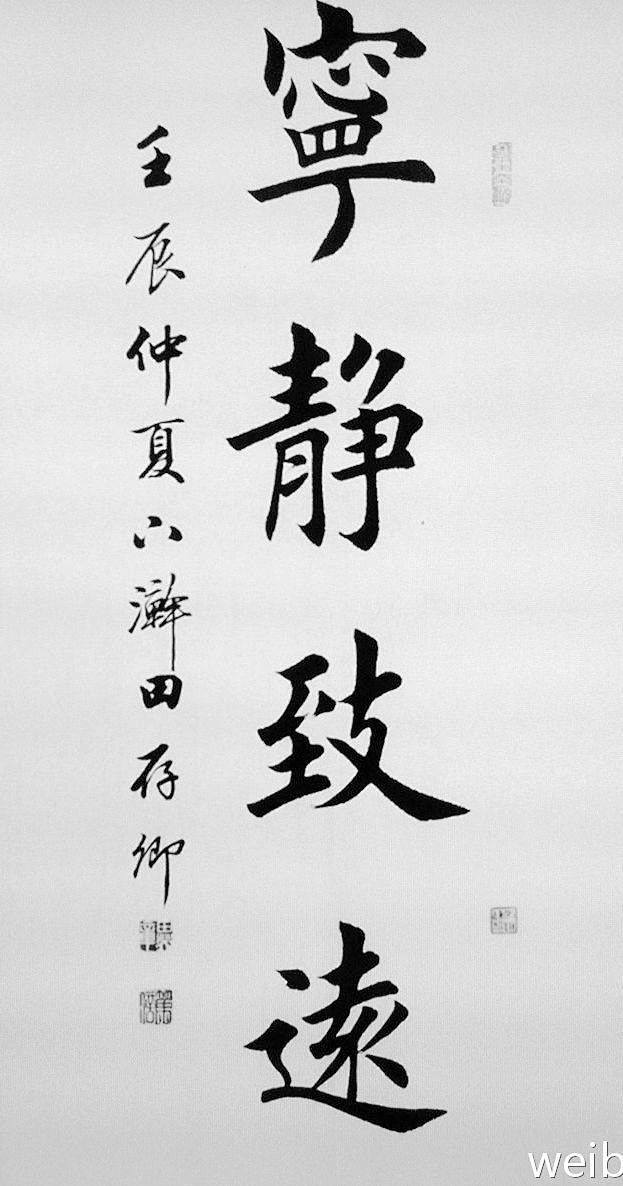 寧静致遠
壬辰仲夏田存卿
weib